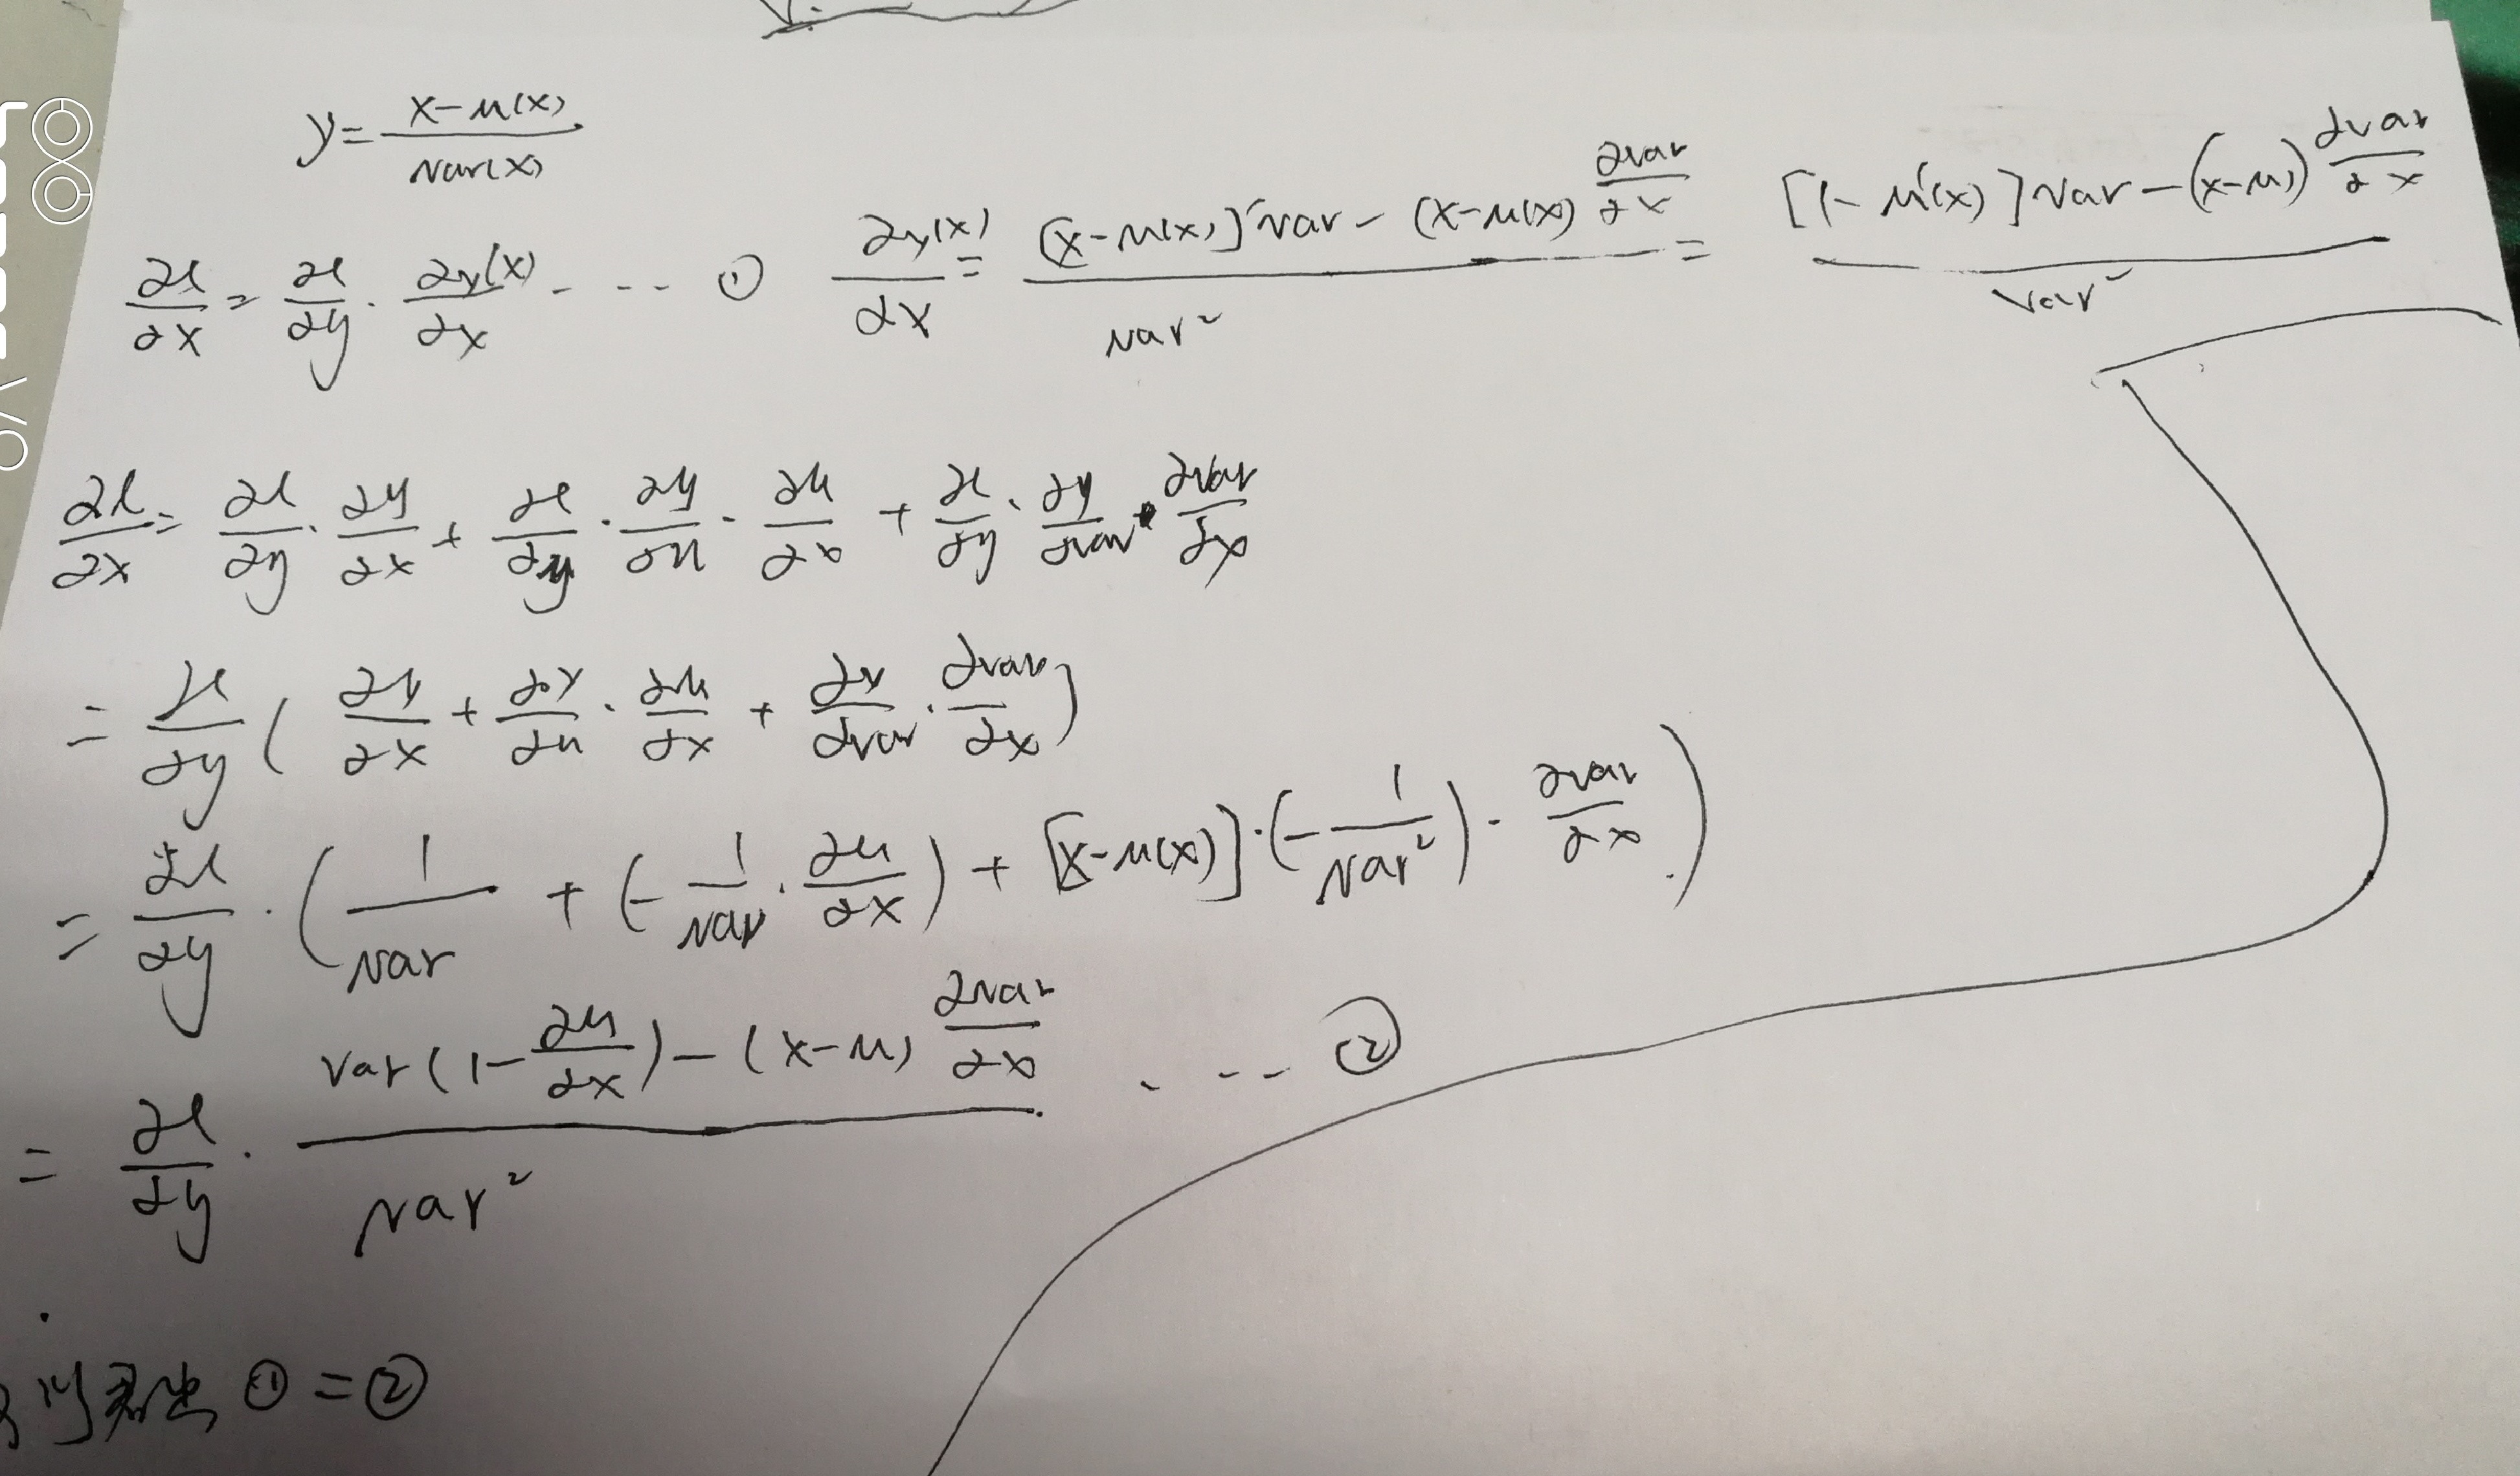 y = (x-μ(x)) / var(x)
∂l/∂x = ∂l/∂y · ∂y(x)/∂x ---- ① ∂y(x)/∂x = ([x-μ(x)]'var - (x-μ(x)) ∂var/∂x) / var² = ([1-μ'(x)]var - (x-μ) ∂var/∂x) / var²
∂l/∂x = ∂l/∂y · ∂y/∂x + ∂l/∂y · ∂y/∂μ · ∂μ/∂x + ∂l/∂y · ∂y/∂var · ∂var/∂x
= ∂l/∂y ( ∂y/∂x + ∂y/∂μ · ∂μ/∂x + ∂y/∂var · ∂var/∂x )
= ∂l/∂y · ( 1/var + (- 1/var · ∂μ/∂x) + [x-μ(x)] · (- 1/var²) · ∂var/∂x )
= ∂l/∂y · (var(1 - ∂μ/∂x) - (x-μ) ∂var/∂x) / var² ---- ②
可以看出 ① = ②